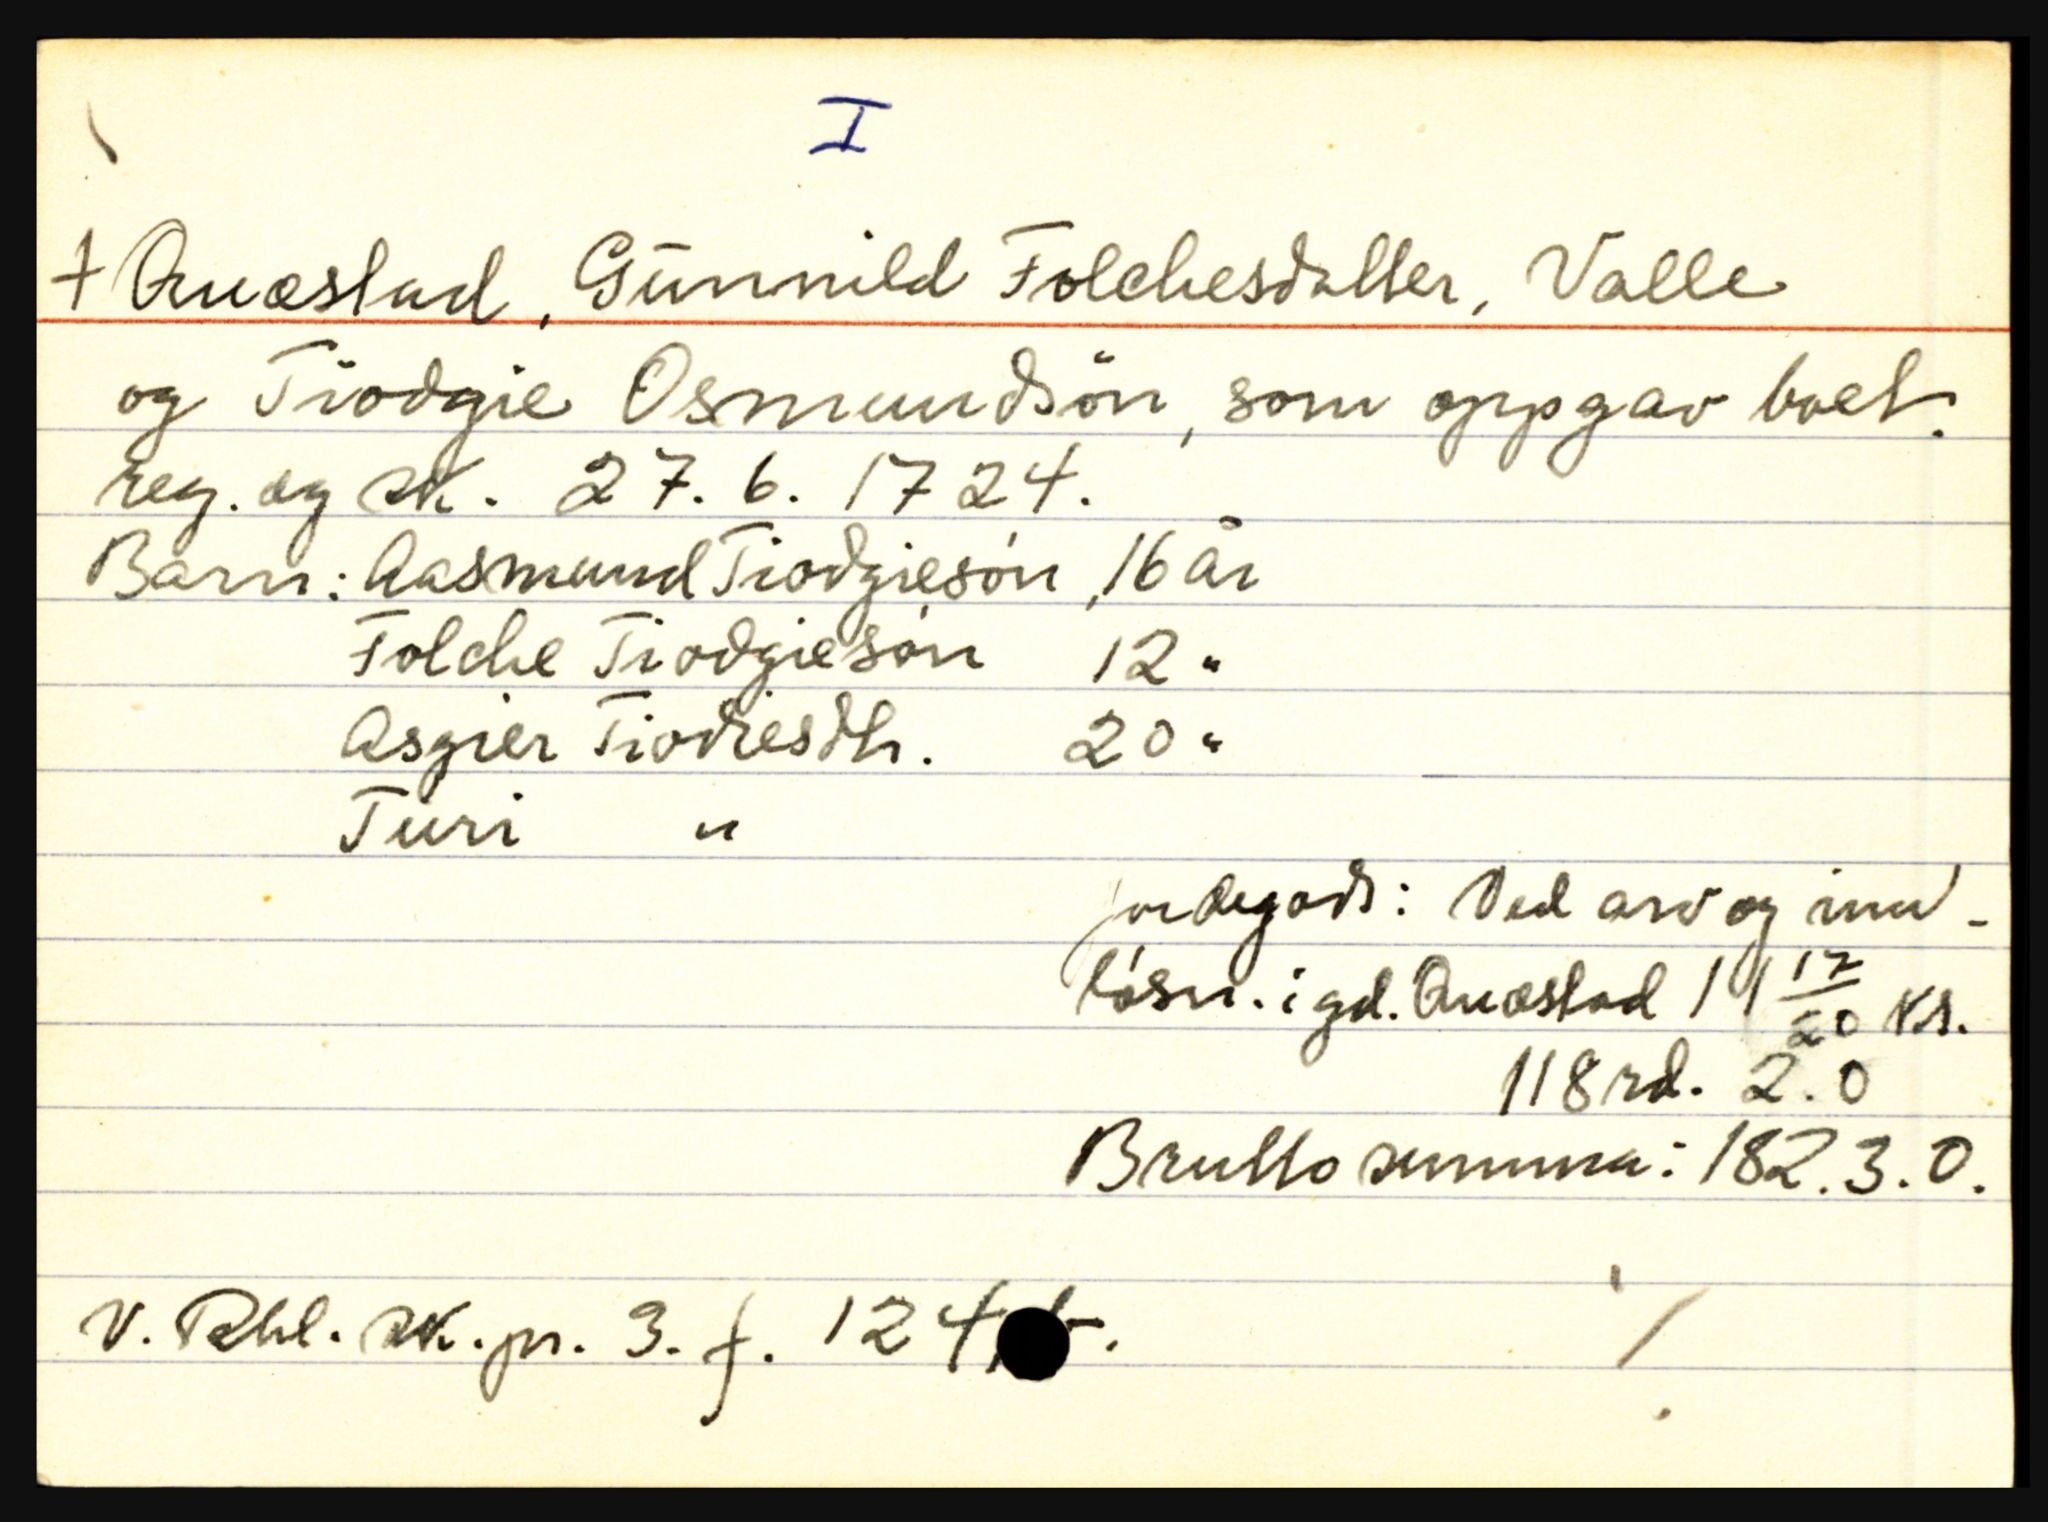 I
+ Quæstad, Gunnild Folchesdatter, Valle
og Tiodgie Osmundsön, som oppgav boet.
reg. og sk. 27.6.1724.
Barn: Aasmund Tiodgiesön, 16 år
Folche Tiodgiesön 12 "
Asgier Tiodiesdtr. 20 "
Turi "
jordegods: Ved arv og inn-
løsn. i gd. Quæstad 11 17/20 ks.
118 rd. 2.0
Brutto summa: 182.3.0.
V. Rbl. sk. pr. 3. f. 124